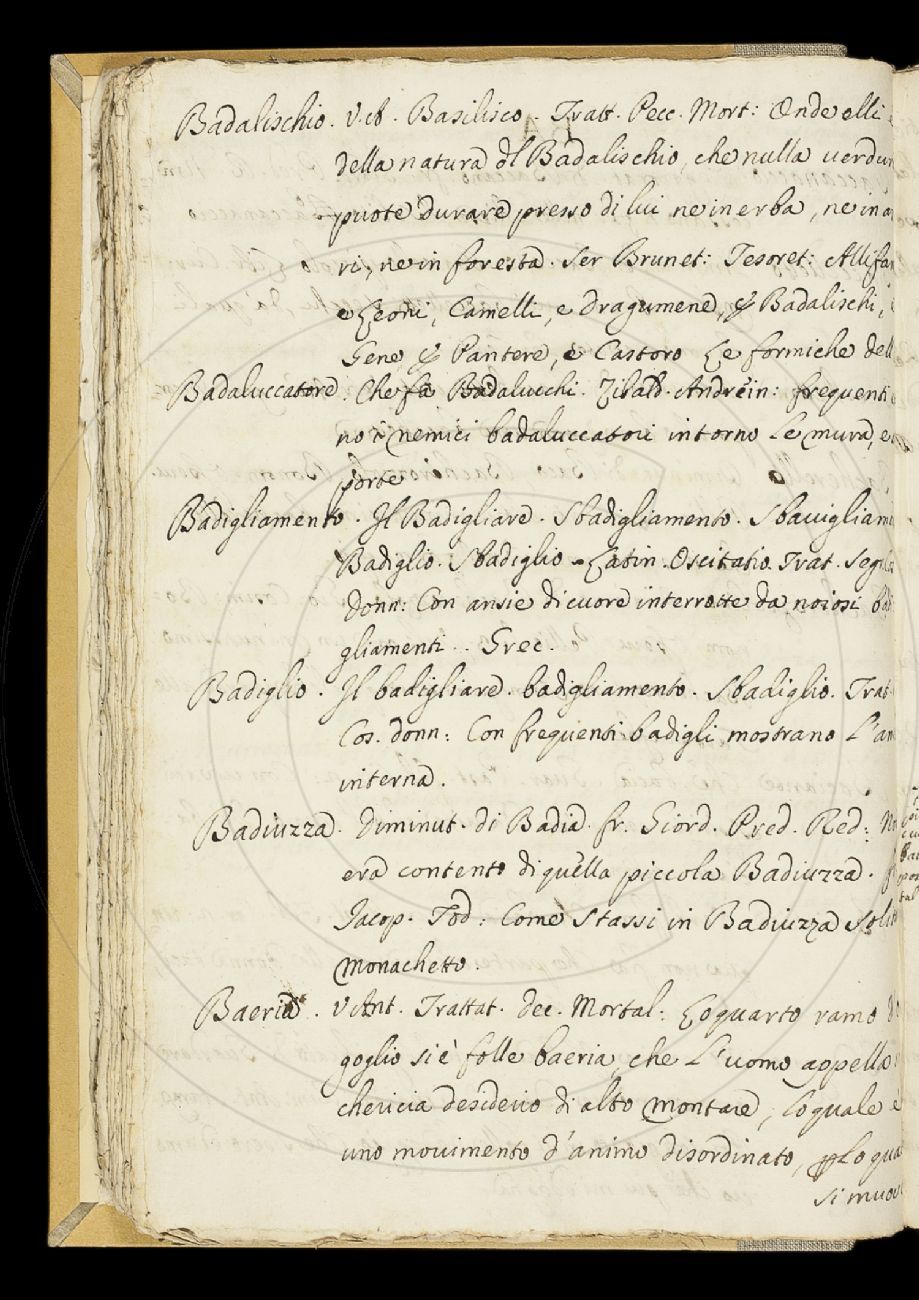 Badalischio. V.A. Basilisco. Tratt. Pecc. Mort: Onde elli è
della natura dl Badalischio, che nulla uerdur
puote durare presso di lui ne in erba, ne in ar
ri, ne in foresta. Ser Brunet: Tesoret: Allifan
e Leoni, Camelli, e Dragumene, & Badalischi,
Gene & Pantere, e Castoro Le formiche dell
Badaluccatore. Che fa Badalucchi. Zibald. Andrein: frequenti
no i nemici badaluccatori intorno le mura, e
porte
Badigliamento. Il Badigliare. Sbadigliamento. Sbauigliam
Badiglio. Sbadiglio. Latin. Oscitatio. Trat. Segr.
donn: Con ansie di cuore interrotte da noiosi ba
gliamenti. Grec.
Badiglio. Il badigliare. badigliamento. Sbadiglio. Trat
Cos. donn: Con frequenti badigli mostrano L'an
interna.
Badiuzza. Diminut. di Badia. fr. Giord. Pred. Red: No
era contento di quella piccola Badiuzza. f
Jacop. Tod: Come Stassi in Badiuzza Solit
Monachetto.
Baeria. V. Ant. Trattat. Pec. Mortal: Loquarto ramo d
goglio si è folle baeria, che L'uomo appella
chericia desiderio di alto montare, loquale è
uno mouimento d'animo disordinato, Lo qua
si muoue